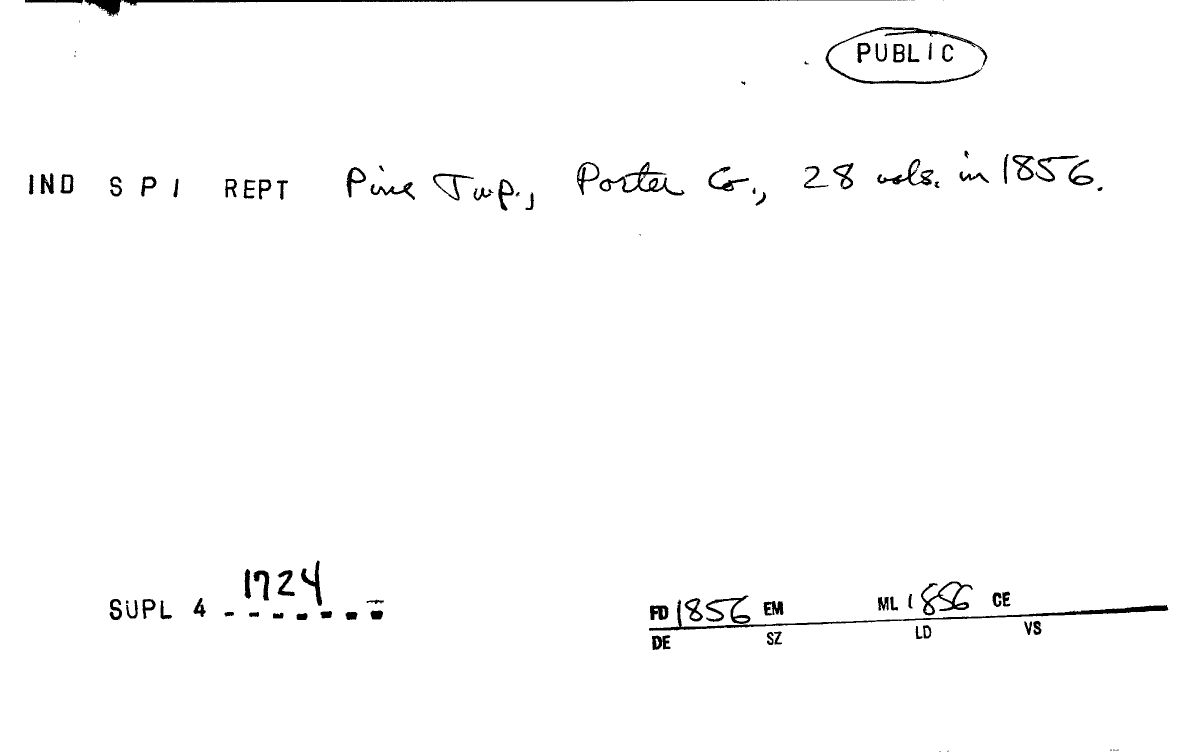 PUBLIC
IND S P I REPT Pine Twp., Porter Co., 28 vols. in 1856.
SUPL 4 1724
FD 1856 EM ML 1856 CE
DE SZ LD VS